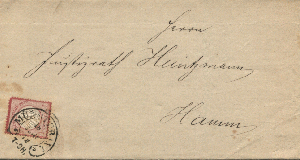 Herrn
Justizrath Heintzmann
Hamm